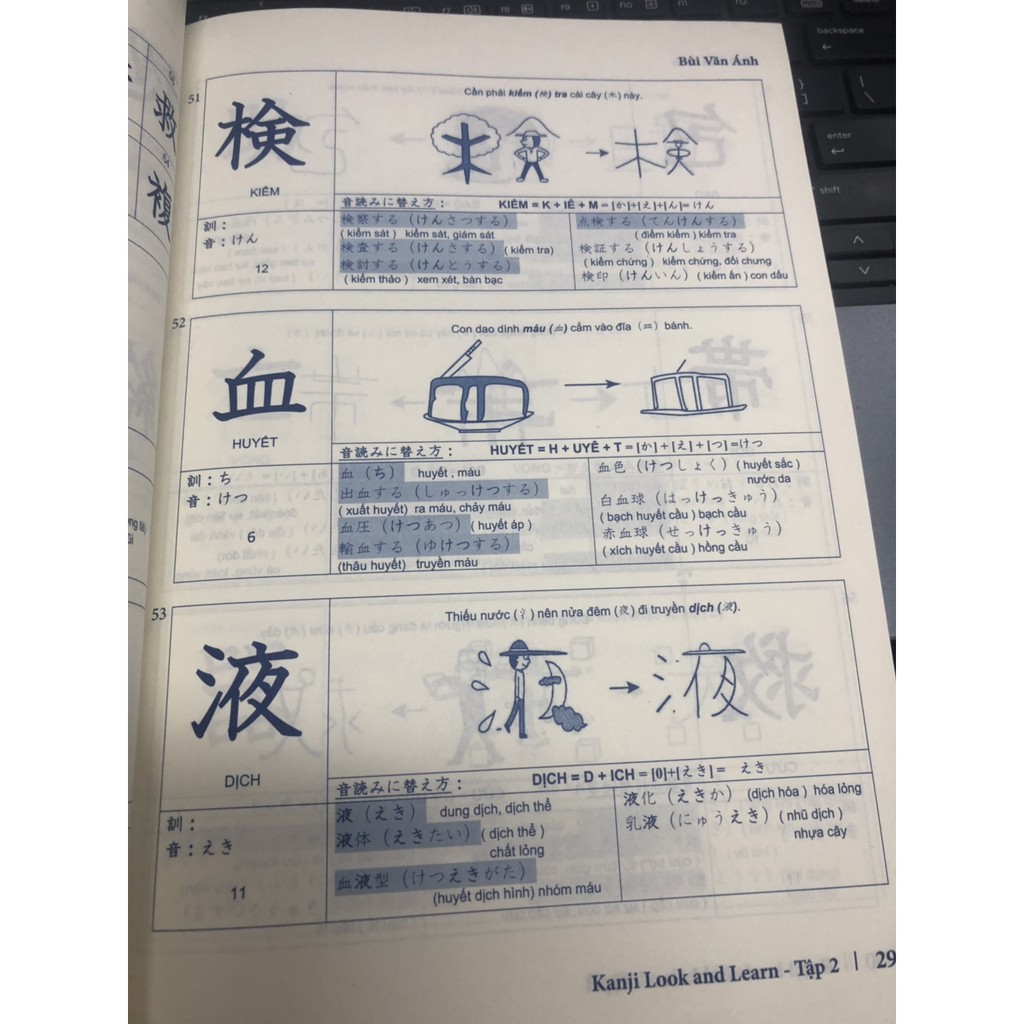 Bùi Văn Ánh
51
検
KIỂM
訓：
音：けん
12
Cần phải kiểm (検) tra cái cây (木) này.
音読みに替え方： KIỂM = K + IÊ + M = [か]+[え]+[ん]= けん
検察する（けんさつする）
( kiểm sát ) kiểm sát, giám sát
検査する（けんさする）( kiểm tra)
検討する（けんとうする）
( kiểm thảo ) xem xét, bàn bạc
点検する（てんけんする）
(điểm kiểm ) kiểm tra
検証する（けんしょうする）
( kiểm chứng ) kiểm chứng, đối chưng
検印（けんいん）( kiểm ấn ) con dấu
52
血
HUYẾT
訓：ち
音：けつ
6
Con dao dính máu (血) cắm vào đĩa (皿) bánh.
音読みに替え方： HUYẾT = H + UYÊ + T = [か] + [え] + [つ] =けつ
血（ち） huyết , máu
出血する（しゅっけつする）
( xuất huyết) ra máu, chảy máu
血圧（けつあつ）( huyết áp )
輸血する（ゆけつする）
(thâu huyết) truyền máu
血色（けつしょく）( huyết sắc )
nước da
白血球（はっけっきゅう）
( bạch huyết cầu ) bạch cầu
赤血球（せっけっきゅう）
( xích huyết cầu ) hồng cầu
53
液
DỊCH
訓：
音：えき
11
Thiếu nước (氵) nên nửa đêm (夜) đi truyền dịch (液).
音読みに替え方： DỊCH = D + ICH = [0]+[えき] = えき
液（えき） dung dịch, dịch thể
液体（えきたい）( dịch thể )
chất lỏng
血液型（けつえきがた）
(huyết dịch hình) nhóm máu
液化（えきか） (dịch hóa ) hóa lỏng
乳液（にゅうえき）( nhũ dịch )
nhựa cây
Kanji Look and Learn - Tập 2 | 29
backspace
enter
shift